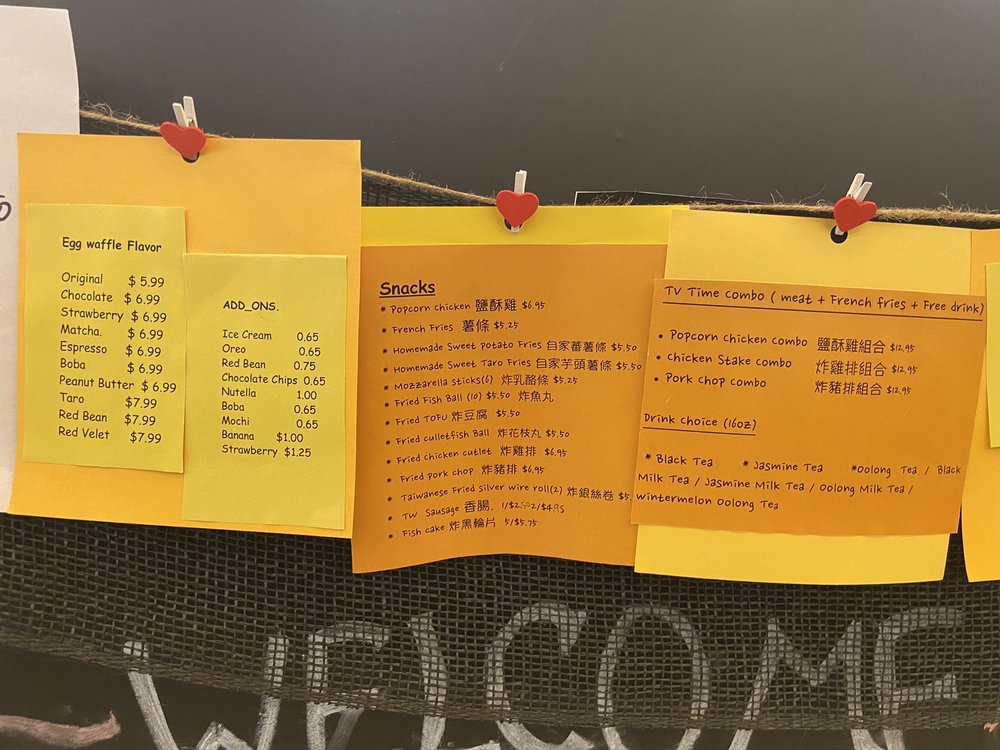 Egg waffle Flavor
Original $ 5.99
Chocolate $ 6.99
Strawberry $ 6.99
Matcha. $ 6.99
Espresso $ 6.99
Boba $ 6.99
Peanut Butter $ 6.99
Taro $7.99
Red Bean $7.99
Red Velet $7.99
ADD_ONS.
Ice Cream 0.65
Oreo 0.65
Red Bean 0.75
Chocolate Chips 0.65
Nutella 1.00
Boba 0.65
Mochi 0.65
Banana $1.00
Strawberry $1.25
Snacks
* Popcorn chicken 鹽酥雞 $6.95
* French Fries 薯條 $5.25
* Homemade Sweet potato Fries 自家蕃薯條 $5.50
* Homemade Sweet Taro Fries 自家芋頭薯條 $5.50
* Mozzarella sticks(6) 炸乳酪條 $5.25
* Fried Fish Ball (10) $5.50 炸魚丸
* Fried TOFU 炸豆腐 $5.50
* Fried culletfish Ball 炸花枝丸 $5.50
* Fried chicken cutlet 炸雞排 $6.95
* Fried pork chop 炸豬排 $6.95
* Taiwanese Fried silver wire roll(2) 炸銀絲卷 $5.
* TW Sausage 香腸. 1/$2.50 2/$4.95
* Fish cake 炸黑輪片 5/$5.75
TV Time combo ( meat + French fries + Free drink)
• Popcorn chicken combo 鹽酥雞組合 $12.95
• Chicken Stake combo 炸雞排組合 $12.95
• Pork chop combo 炸豬排組合 $12.95
Drink choice (16oz)
* Black Tea * Jasmine Tea *Oolong Tea / Black
Milk Tea / Jasmine Milk Tea / Oolong Milk Tea /
Wintermelon Oolong Tea
WELCOME